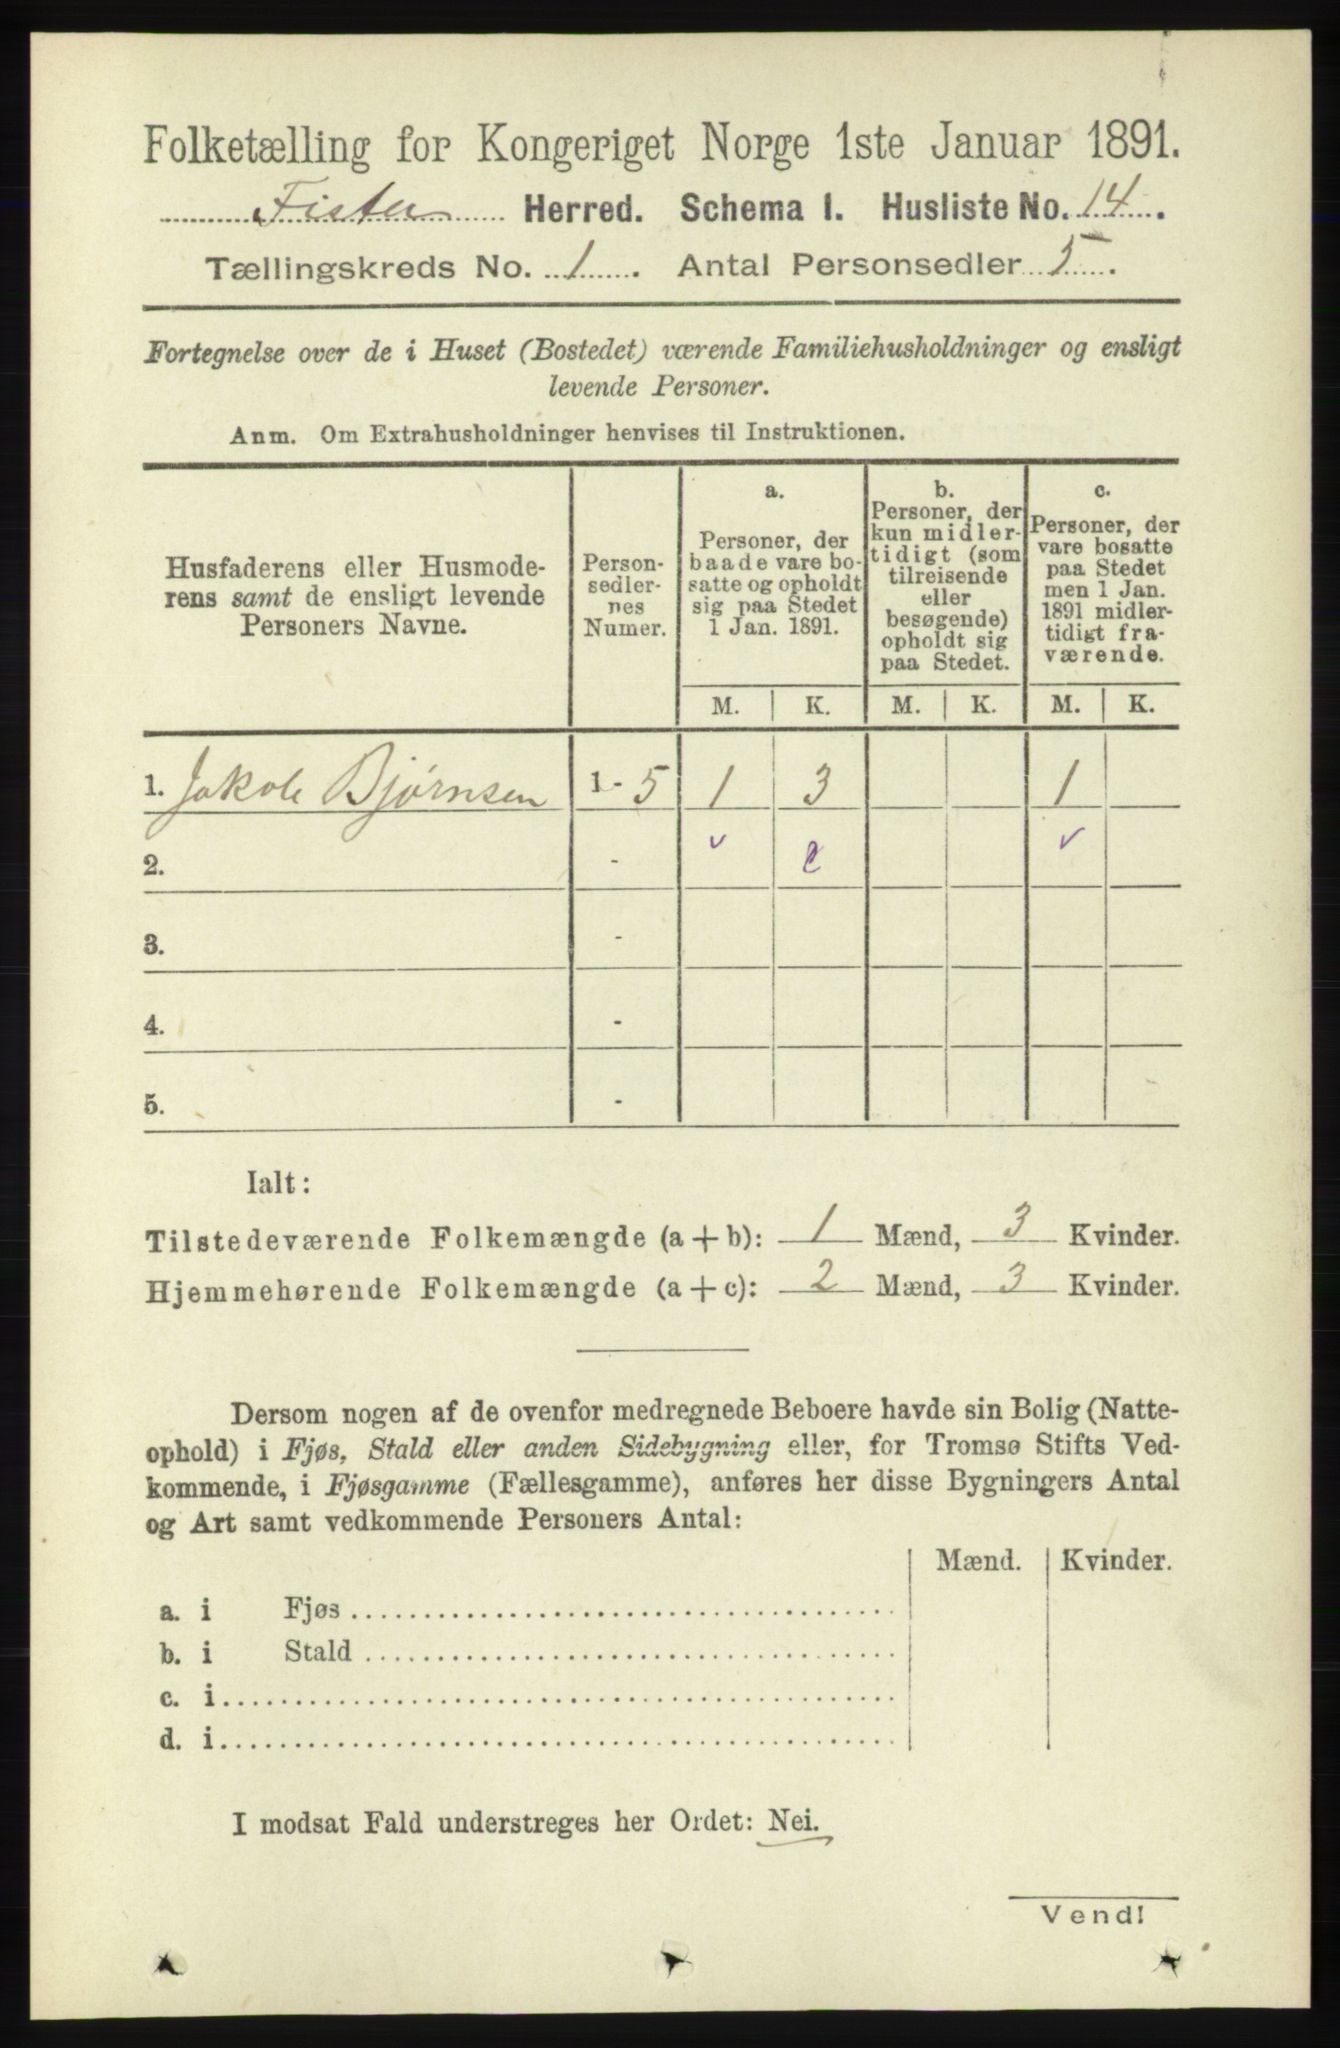 Folketælling for Kongeriget Norge 1ste Januar 1891.
Fister Herred. Schema I. Husliste No. 14.
Tællingskreds No. 1. Antal Personsedler 5.
Fortegnelse over de i Huset (Bostedet) værende Familiehusholdninger og ensligt
levende Personer.
Anm. Om Extrahusholdninger henvises til Instruktionen.
Husfaderens eller Husmode-
rens samt de ensligt levende
Personers Navne.
Person-
sedler-
nes
Numer.
a.
Personer, der
baade vare bo-
satte og opholdt
sig paa Stedet
1 Jan. 1891.
b.
Personer, der
kun midler-
tidigt (som
tilreisende
eller
besøgende)
opholdt sig
paa Stedet.
c.
Personer, der
vare bosatte
paa Stedet
men 1 Jan.
1891 midler-
tidigt fra-
værende.
M. K. M. K. M. K.
1. Jakob Bjørnsen 1 - 5 1 3 1
2. -
3. -
4. -
5. -
Ialt:
Tilstedeværende Folkemængde (a + b): 1 Mænd, 3 Kvinder.
Hjemmehørende Folkemængde (a + c): 2 Mænd, 3 Kvinder.
Dersom nogen af de ovenfor medregnede Beboere havde sin Bolig (Natte-
ophold) i Fjøs, Stald eller anden Sidebygning eller, for Tromsø Stifts Ved-
kommende, i Fjøsgamme (Fællesgamme), anføres her disse Bygningers Antal
og Art samt vedkommende Personers Antal:
Mænd. Kvinder.
a. i Fjøs
b. i Stald
c. i
d. i
I modsat Fald understreges her Ordet: Nei.
Vend!